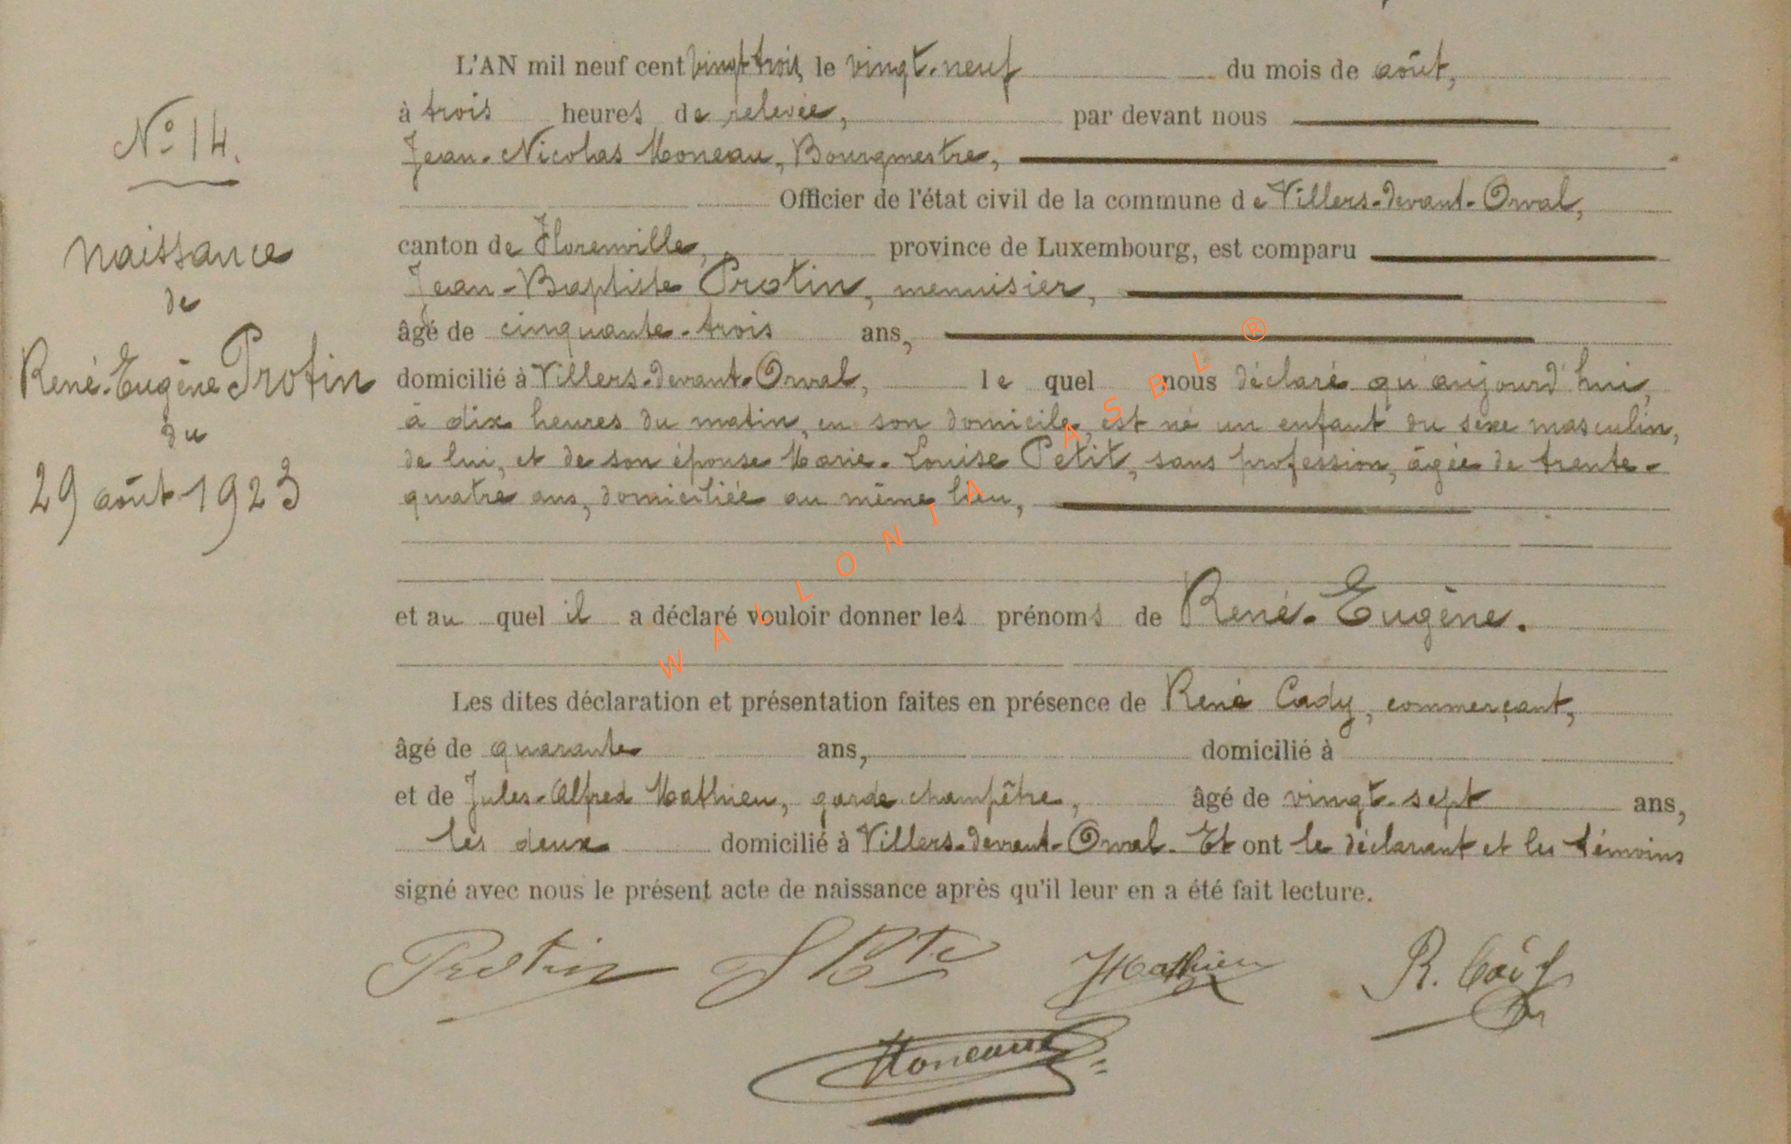 L'AN mil neuf cent vingt trois, le vingt-neuf du mois de août,
à trois heures de relevée, par devant nous
Jean-Nicolas Moneau, Bourgmestre,
Officier de l'état civil de la commune de Villers-devant-Orval,
canton de Florenville, province de Luxembourg, est comparu
Jean-Baptiste Protin, menuisier,
âgé de cinquante-trois ans,
domicilié à Villers-devant-Orval, lequel nous déclaré qu'aujourd'hui,
à dix heures du matin, en son domicile, est né un enfant du sexe masculin,
de lui, et de son épouse Marie-Louise Petit, sans profession, âgée de trente-
quatre ans, domiciliée au même lieu,
et au quel il a déclaré vouloir donner les prénoms de René-Eugène.
Les dites déclaration et présentation faites en présence de René Cady, commerçant,
âgé de quarante ans, domicilié à
et de Jules-Alfred Mathieu, garde champêtre, âgé de vingt-sept ans,
les deux domicilié à Villers-devant-Orval. Et ont le déclarant et les témoins
signé avec nous le présent acte de naissance après qu'il leur en a été fait lecture.
Protin J Bte JMathieu R. Cady
Moneau
No 14.
Naissance
de
René-Eugène Protin
du
29 août 1923
WALLONIA ASBL ®